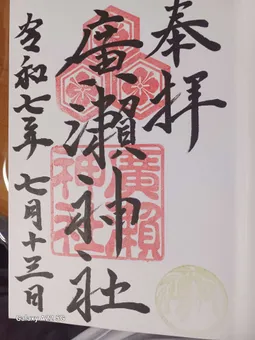 奉拝
廣瀬神社
廣瀬神社
令和七年七月十三日
Galaxy A22 5G